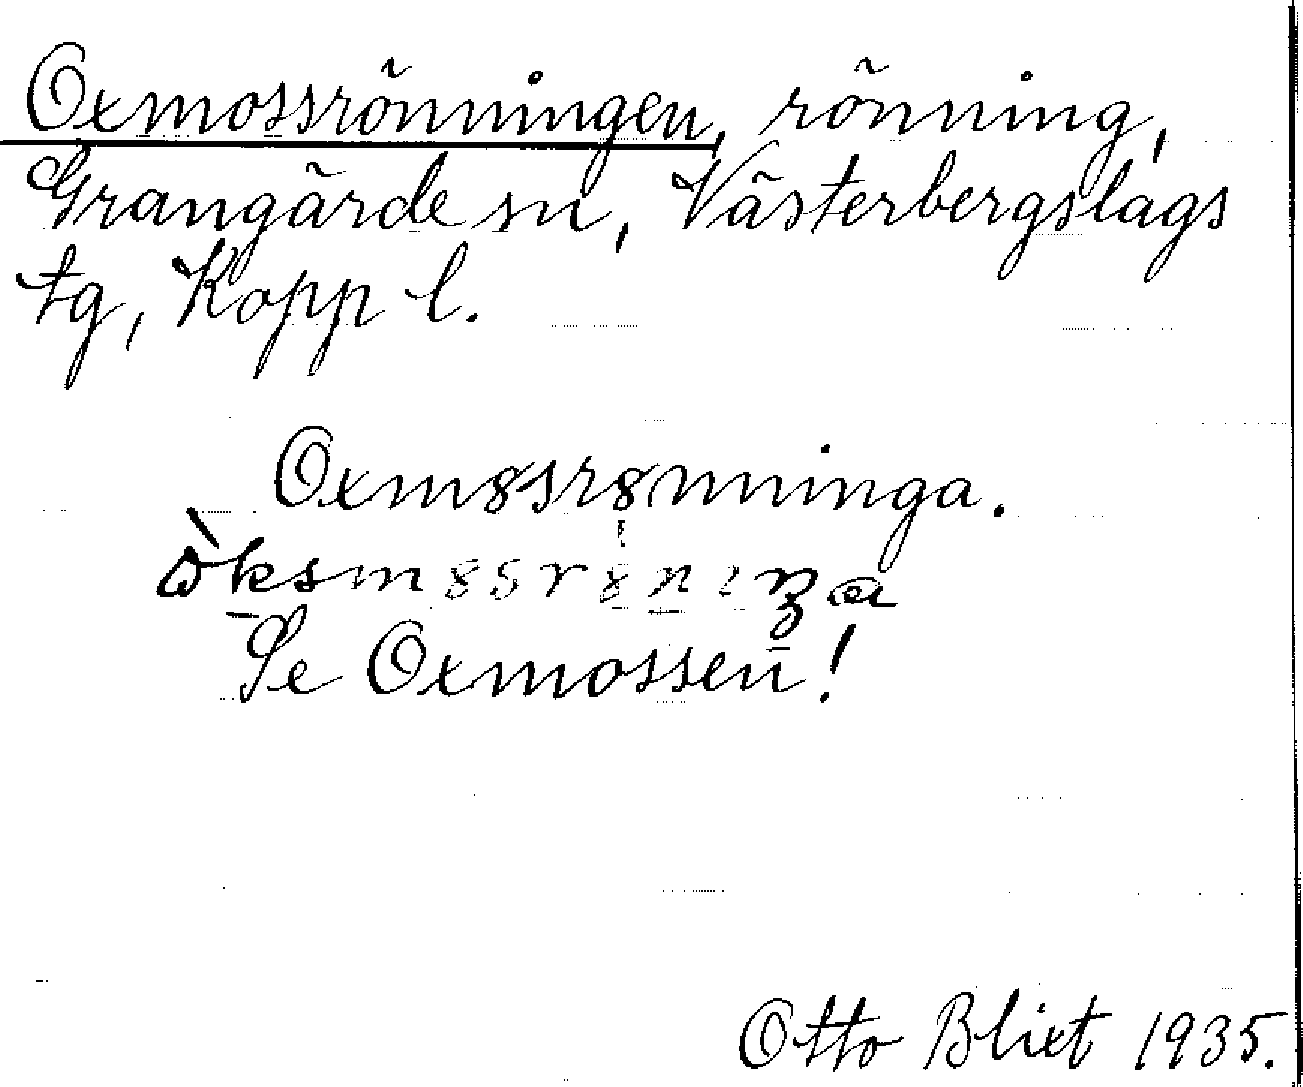 Oxmossrönningen, rönning,
Grangärde sn, Västerbergslags
tg, Kopp l.
Oxm8sr8nninga.
Se Oxmossen!
Otto Blixt 1935.